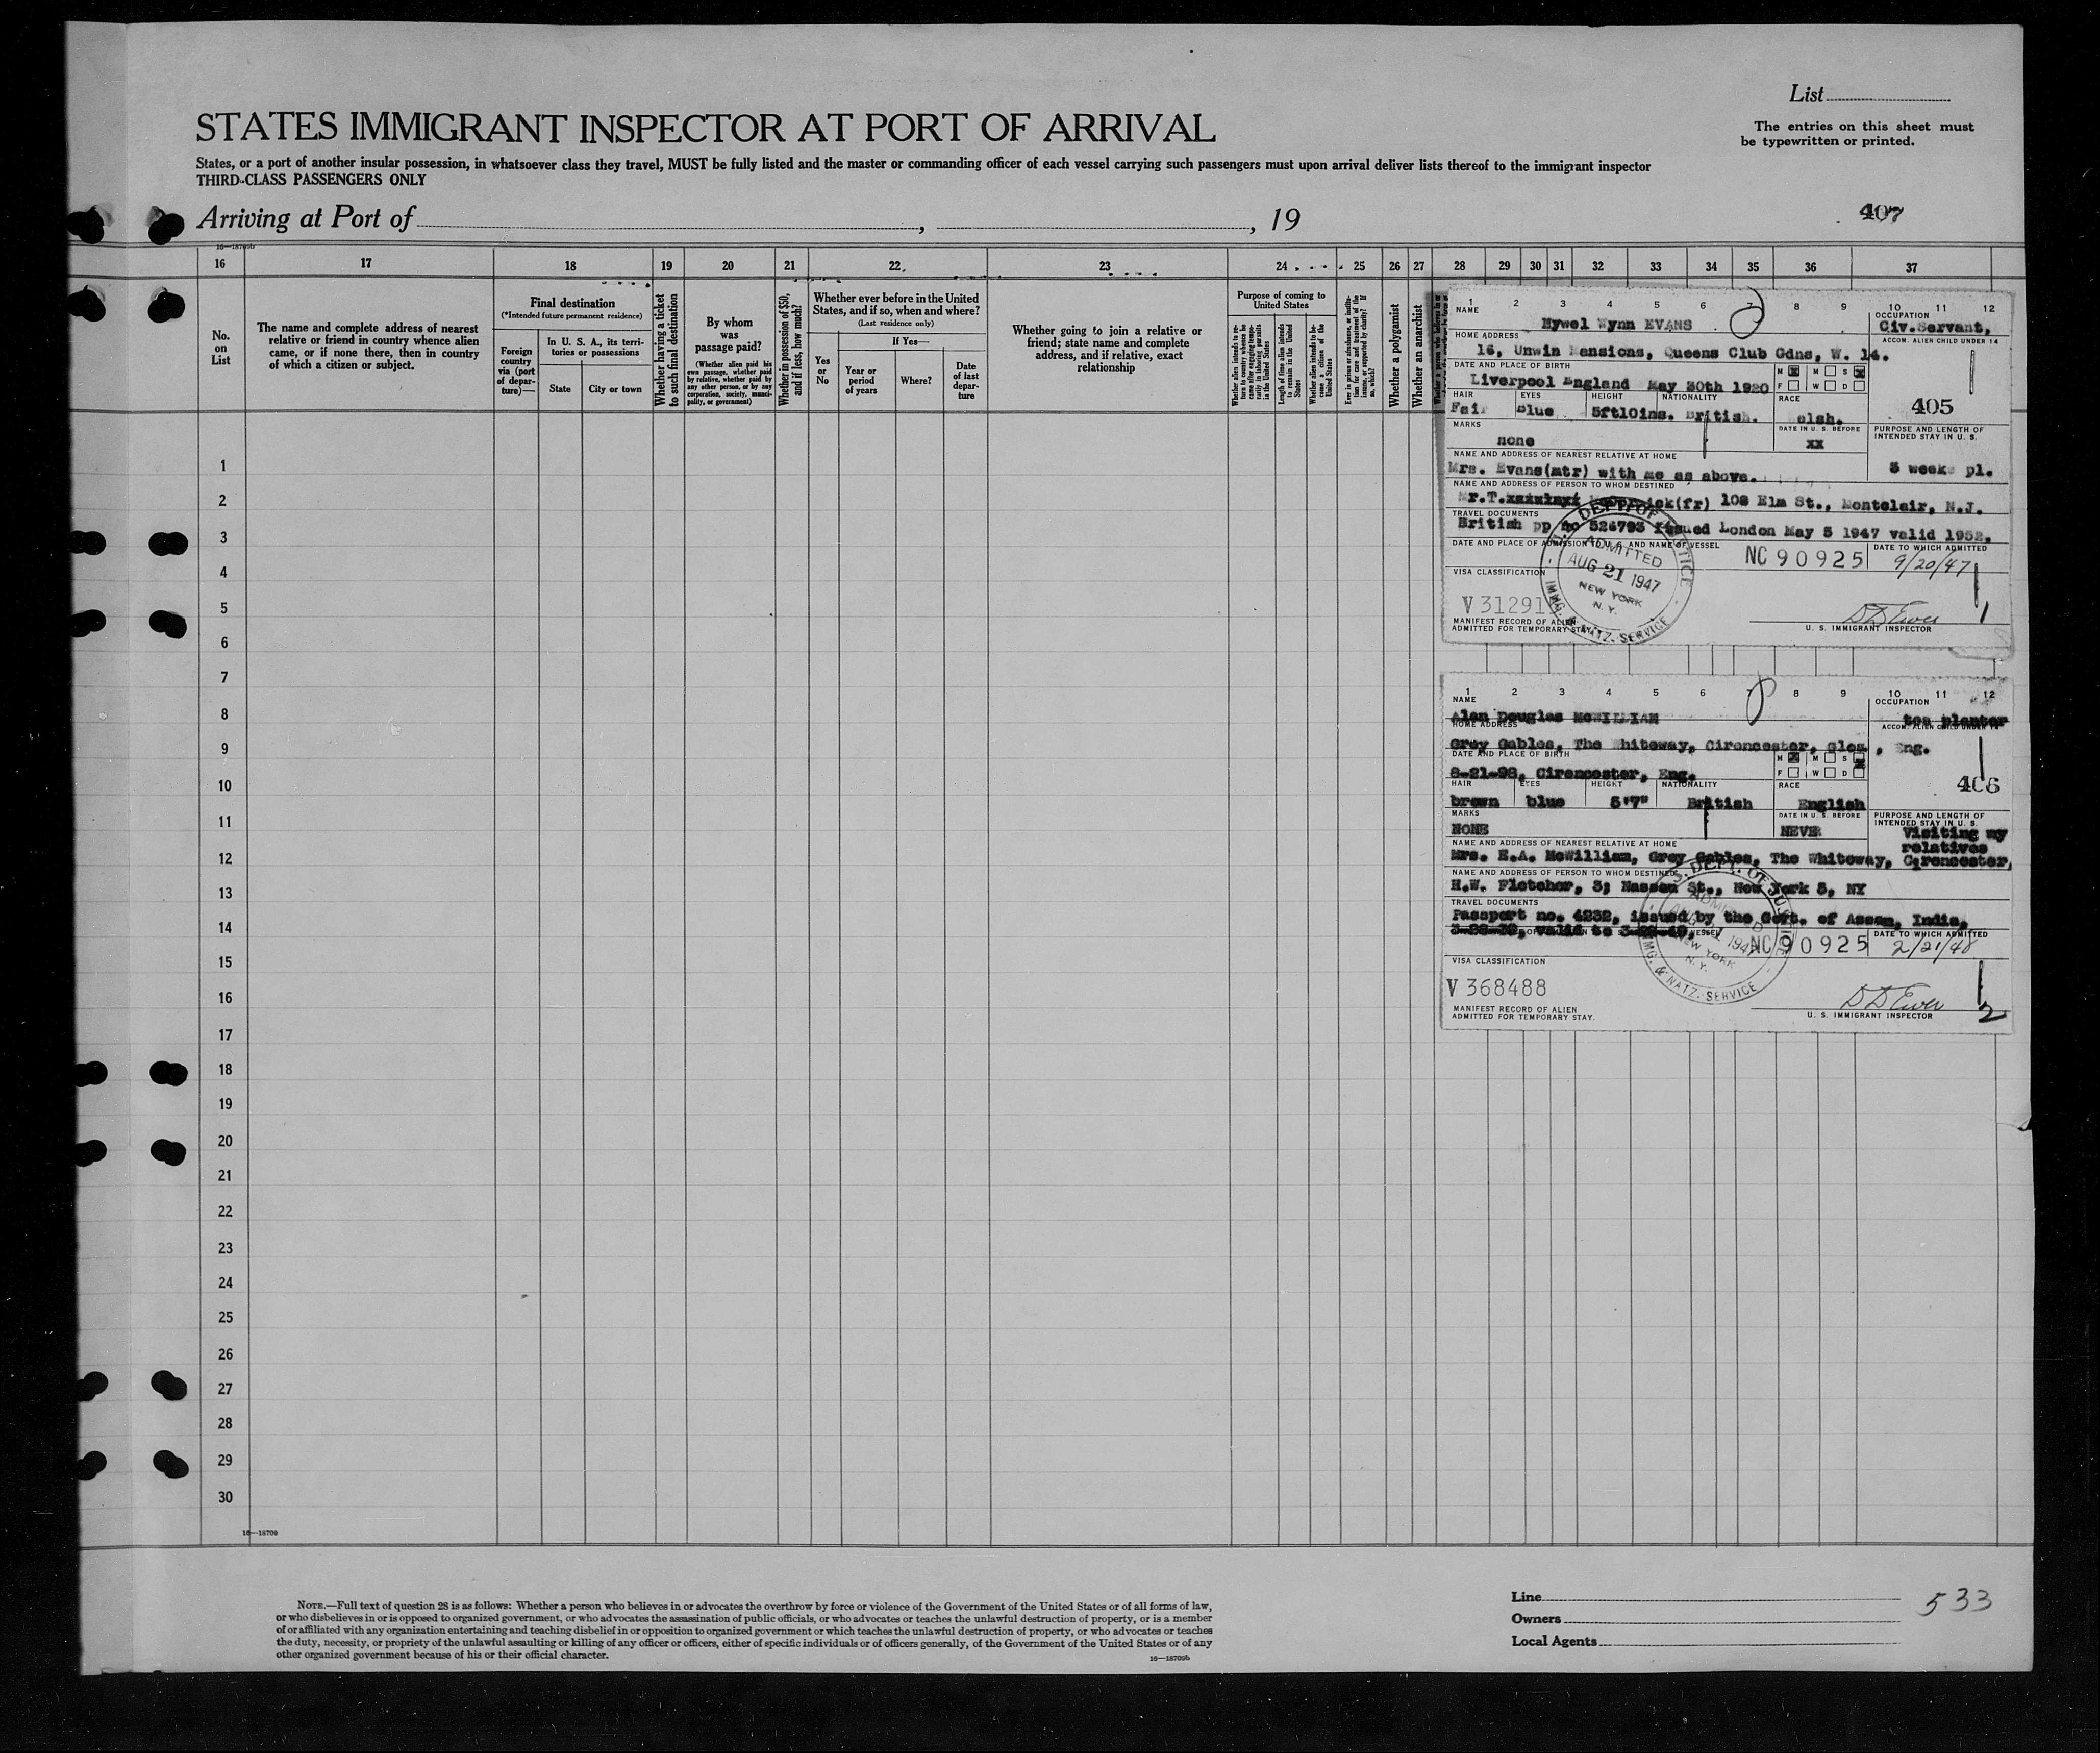 List
The entries on this sheet must
be typewritten or printed.
STATES IMMIGRANT INSPECTOR AT PORT OF ARRIVAL
States, or a port of another insular possession, in whatsoever class they travel, MUST be fully listed and the master or commanding officer of each vessel carrying such passengers must upon arrival deliver lists thereof to the immigrant inspector
THIRD-CLASS PASSENGERS ONLY
Arriving at Port of , , 19
407
16—18709b
16 17 18 19 20 21 22 23 24 25 26 27 28 29 30 31 32 33 34 35 36 37
No.
on
List
The name and complete address of nearest
relative or friend in country whence alien
came, or if none there, then in country
of which a citizen or subject.
Final destination
(*Intended future permanent residence)
Foreign
country
via (port
of depar-
ture)—
In U. S. A., its terri-
tories or possessions
State
City or town
Whether having a ticket
to such final destination
By whom
was
passage paid?
(Whether alien paid his
own passage, whether paid
by relative, whether paid by
any other person, or by any
corporation, society, munici-
pality, or government)
Whether in possession of $50,
and if less, how much?
Whether ever before in the United
States, and if so, when and where?
(Last residence only)
Yes
or
No
If Yes—
Year or
period
of years
Where?
Date
of last
depar-
ture
Whether going to join a relative or
friend; state name and complete
address, and if relative, exact
relationship
Purpose of coming to
United States
Length of time alien intends
to remain in the United
States
Whether alien intends to be-
come a citizen of the
United States
Whether a polygamist
Whether an anarchist
1 2 3 4 5 6 7 8 9 10 11 12
NAME
Hywel Wynn EVANS
OCCUPATION
Civ.Servant,
HOME ADDRESS
ACCOM. ALIEN CHILD UNDER 14
16, Unwin Mansions, Queens Club Gdns, W. 14.
DATE AND PLACE OF BIRTH
Liverpool England May 30th 1920
M M S
F W D
HAIR EYES HEIGHT NATIONALITY RACE
Fair Blue 5ft10ins. British. elsh.
405
MARKS
none
DATE IN U. S. BEFORE
xx
PURPOSE AND LENGTH OF
INTENDED STAY IN U. S.
3 weeks pl.
NAME AND ADDRESS OF NEAREST RELATIVE AT HOME
Mrs. Evans(mtr) with me as above.
NAME AND ADDRESS OF PERSON TO WHOM DESTINED
Mr.T. (fr) 108 Elm St., Montclair, N.J.
TRAVEL DOCUMENTS
British pp no 526793 issued London May 5 1947 valid 1952.
DATE AND PLACE OF ADMISSION TO U. S. AND NAME OF VESSEL
NC 90925
DATE TO WHICH ADMITTED
9/20/47
U.S. DEPT. OF JUSTICE
ADMITTED
AUG 21 1947
NEW YORK
N. Y.
IMMG. & NATZ. SERVICE
VISA CLASSIFICATION
V 31291
MANIFEST RECORD OF ALIEN
ADMITTED FOR TEMPORARY STAY.
D D Ewer
U. S. IMMIGRANT INSPECTOR
1
1 2 3 4 5 6 7 8 9 10 11 12
NAME
Alan Douglas McWILLIAM
OCCUPATION
tea planter
HOME ADDRESS
ACCOM. ALIEN CHILD UNDER 14
Grey Gables, The Whiteway, Cirencester, Glos, Eng.
DATE AND PLACE OF BIRTH
8-21-98, Cirencester, Eng.
M M S
F W D
HAIR EYES HEIGHT NATIONALITY RACE
brown blue 5'7" British English
406
MARKS
NONE
DATE IN U. S. BEFORE
NEVER
PURPOSE AND LENGTH OF
INTENDED STAY IN U. S.
Visiting my
relatives
NAME AND ADDRESS OF NEAREST RELATIVE AT HOME
Mrs. E.A. McWilliam, Grey Gables, The Whiteway, Cirencester,
NAME AND ADDRESS OF PERSON TO WHOM DESTINED
H.W. Fletcher, 3; Nassau St., New York 5, NY
TRAVEL DOCUMENTS
Passport no. 4232, issued by the Govt. of Assam, India,
valid to
NC 90925
DATE TO WHICH ADMITTED
2/21/48
U.S. DEPT. OF JUSTICE
ADMITTED
AUG 21 1947
NEW YORK
N. Y.
IMMG. & NATZ. SERVICE
VISA CLASSIFICATION
V 368488
MANIFEST RECORD OF ALIEN
ADMITTED FOR TEMPORARY STAY.
D D Ewer
U. S. IMMIGRANT INSPECTOR
2
1
2
3
4
5
6
7
8
9
10
11
12
13
14
15
16
17
18
19
20
21
22
23
24
25
26
27
28
29
30
16—18709
NOTE.—Full text of question 28 is as follows: Whether a person who believes in or advocates the overthrow by force or violence of the Government of the United States or of all forms of law,
or who disbelieves in or is opposed to organized government, or who advocates the assassination of public officials, or who advocates or teaches the unlawful destruction of property, or is a member
of or affiliated with any organization entertaining and teaching disbelief in or opposition to organized government or which teaches the unlawful destruction of property, or who advocates or teaches
the duty, necessity, or propriety of the unlawful assaulting or killing of any officer or officers, either of specific individuals or of officers generally, of the Government of the United States or of any
other organized government because of his or their official character.
16—18709b
Line
Owners
Local Agents
533